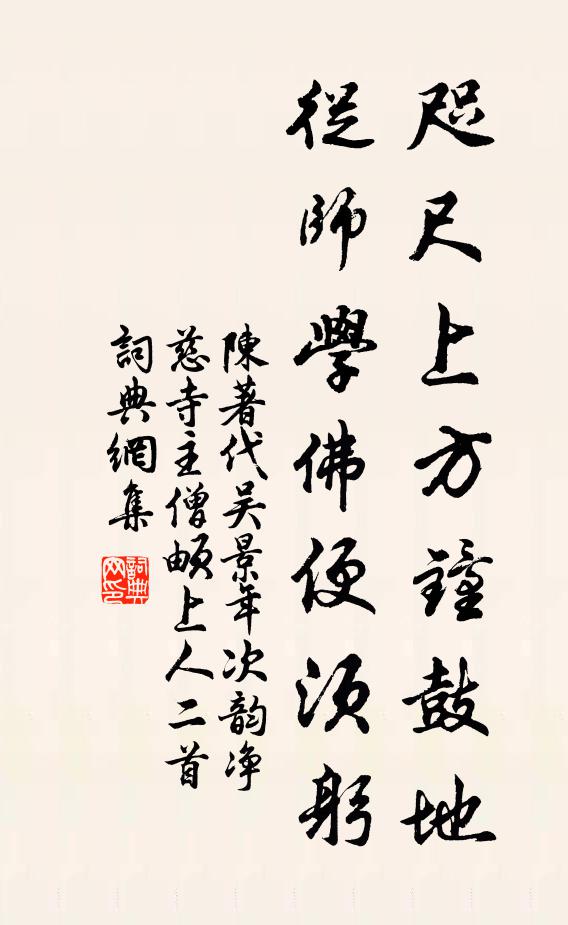 咫尺上方鐘鼓地
從師學佛便須躬
陳著代吴景年次韵净
慈寺主僧頔上人二首
詞典網集
詞典
网印